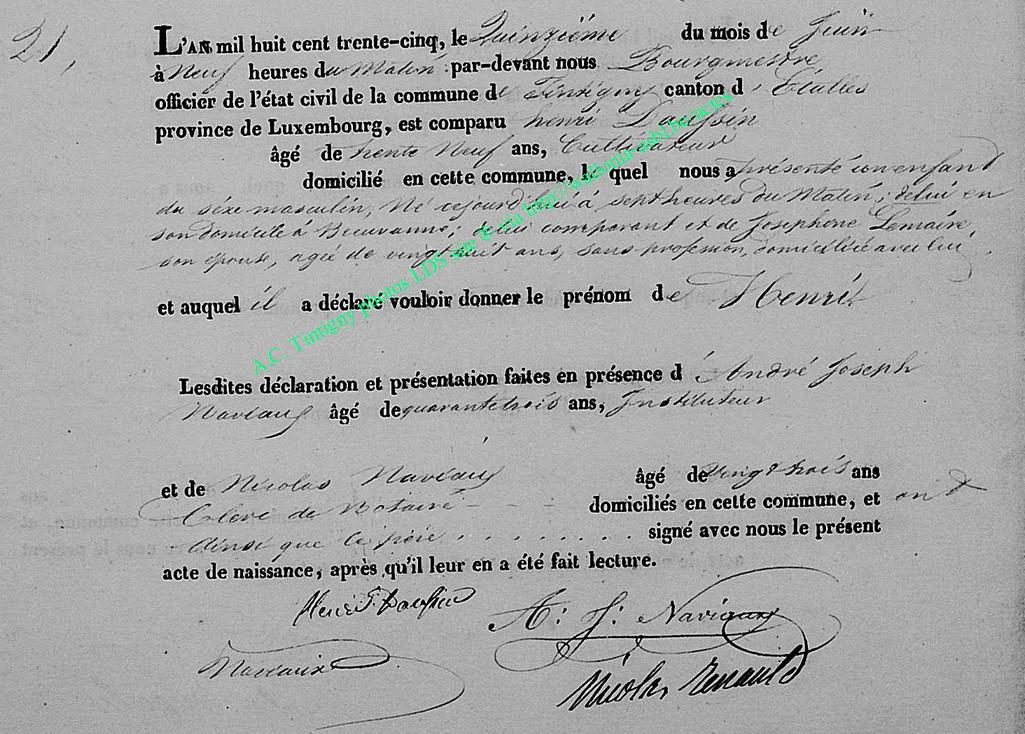 21,
L'AN mil huit cent trente-cinq, le Quinzième du mois de Juin
à Neuf heures du Matin par-devant nous Bourgmestre
officier de l'état civil de la commune de Tintigny canton d'Etalles
province de Luxembourg, est comparu henri Dauphin
âgé de trente Neuf ans, Cultivateur
domicilié en cette commune, le quel nous a présenté un enfant
du séxe masculin, Né cejourd'hui à sept heures du Matin; de lui en
son domicile à Breuvanne; de lui comparant et de Josephine Lemaire,
son épouse, agée de vingt huit ans, sans profession, domiciliée avec lui,
et auquel il a déclaré vouloir donner le prénom de Henri
Lesdites déclaration et présentation faites en présence d'André Joseph
Naveaux âgé de quarante trois ans, Instituteur
et de Nicolas Naveaux âgé de vingt trois ans
Clerc de Notaire domiciliés en cette commune, et ont
ainsi que le père . . . . . . . . . signé avec nous le présent
acte de naissance, après qu'il leur en a été fait lecture.
Henri Dauphin A: J: Naveaux
Naveaux Nicolas Renauld
A.C. Tintigny photos LDS site & via http://wallonia-asbl.be/actes